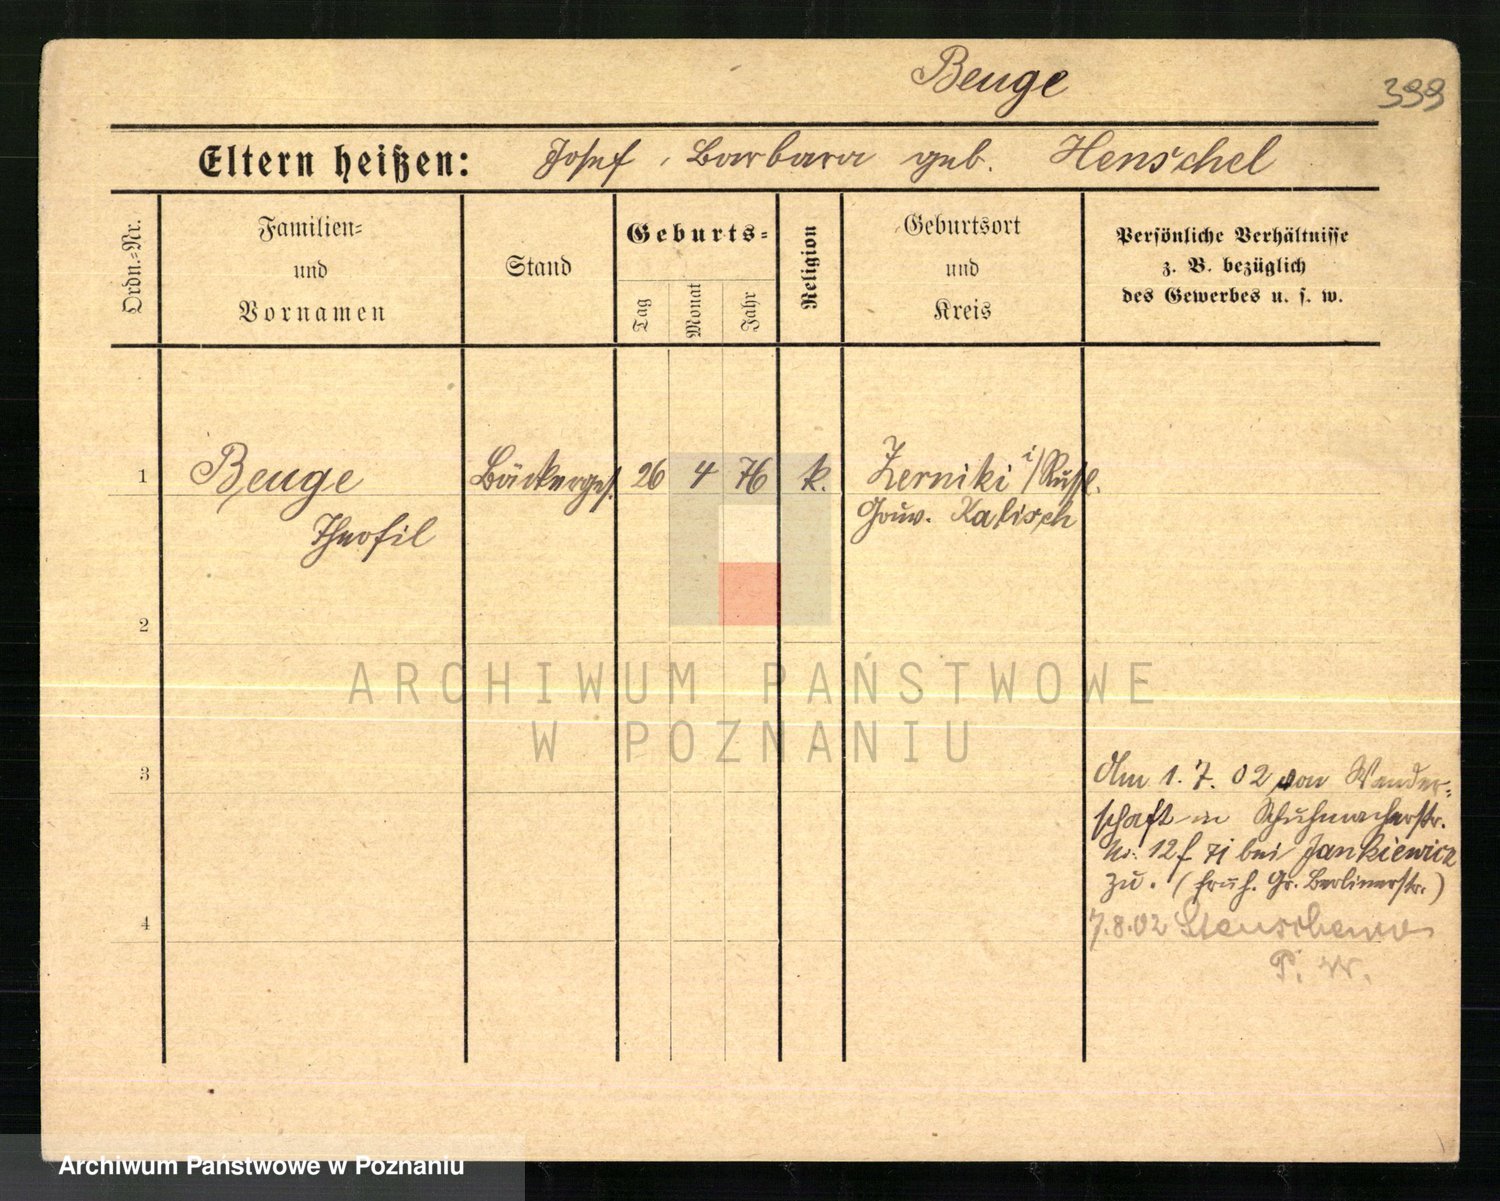 Beuge
399
Eltern heißen: Josef, Barbara geb. Henschel
Ordn.-Nr.
Familien-
und
Vornamen
Stand
Geburts-
Tag
Monat
Jahr
Religion
Geburtsort
und
Kreis
Persönliche Verhältnisse
z. B. bezüglich
des Gewerbes u. s. w.
1 Beuge Bäckerges. 26 4 76 k. Zerniki i/Russl.
Theofil Gouv. Kalisch
2
ARCHIWUM PAŃSTWOWE
W POZNANIU
3
Am 1.7.02 von Wander-
schaft in Schuhmacherstr.
No: 12 bei Jankiewicz
zu. (früh. Gr. Berlinerstr.)
4
7.8.02
P. W.
Archiwum Państwowe w Poznaniu